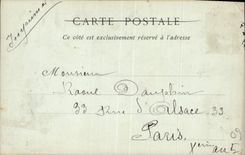 Imprimé
CARTE POSTALE
Ce côté est exclusivement réservé à l'adresse
Monsieur
Raoul Dauphin
33 Rue d'Alsace 33
Paris
Xeme arr